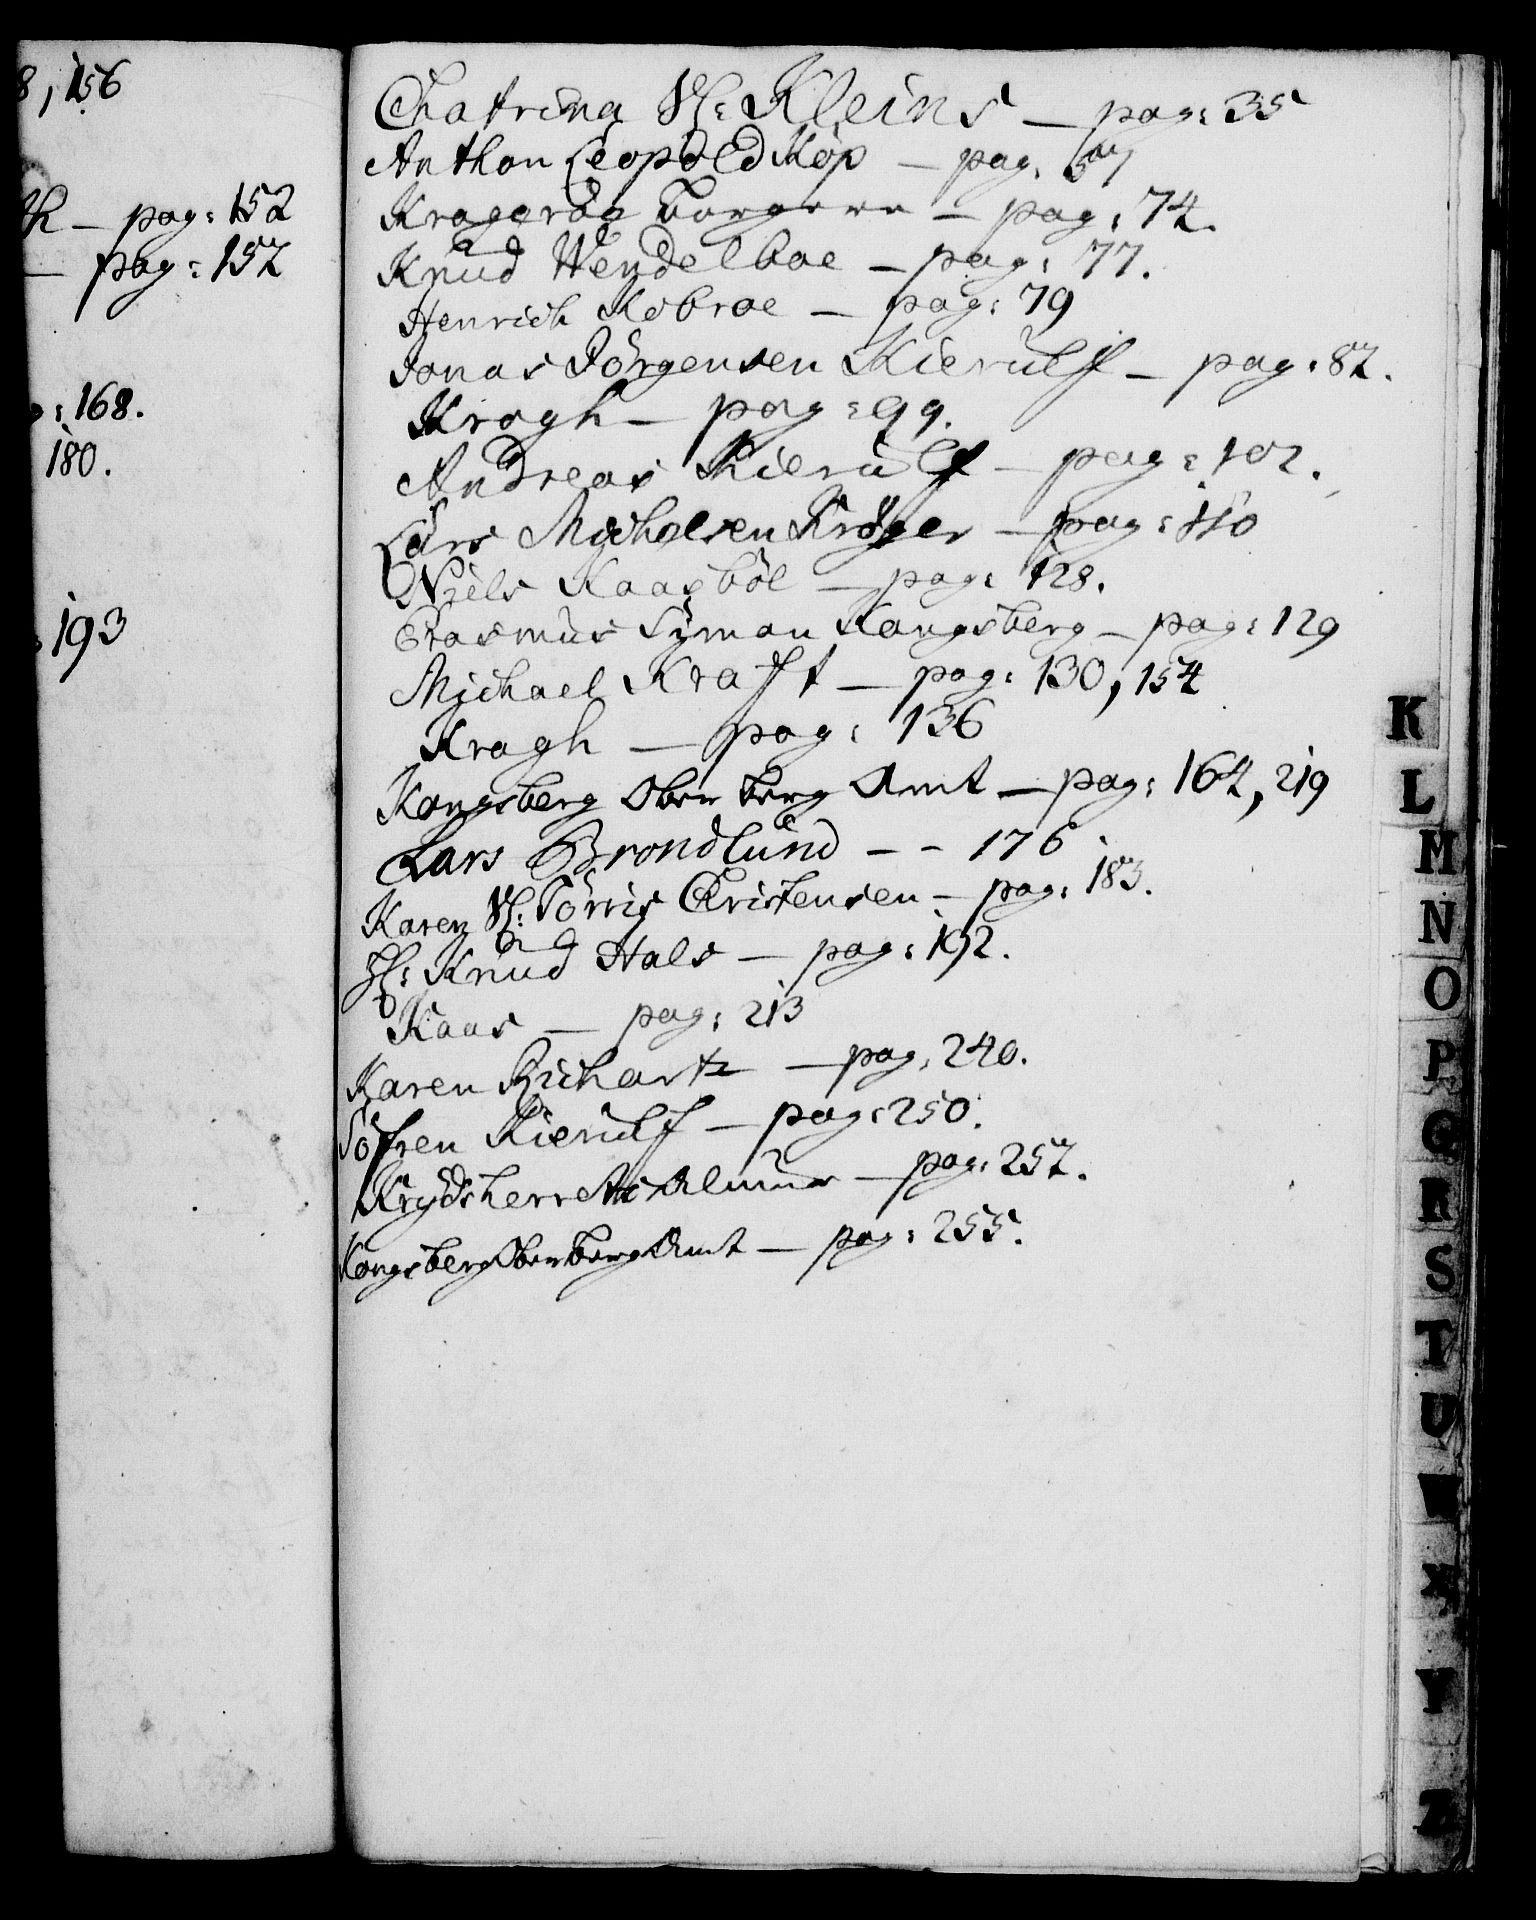 8, 156
th — pag: 152
— pag: 157
g: 168.
180.
: 193
Chatrina Sl: Kleins — pag: 35
Anthon Leopold Köp — pag.
Krageröe Borgere — pag: 74.
Knud Wendelboe — pag: 77.
Henrich Kobroe — pag: 79
Jonas Jörgensen Kierulf — pag: 87.
Kragh — pag: 99.
Andreas Kierulf — pag: 102.
Lars Michelsen Kröger — pag: 110
Niels Kaasböl — pag: 128.
Erasmus Syman Kongsberg — pag: 129
Michael Kraft — pag: 130, 154
Kragh — pag: 136
Kongsberg Ober berg Amt — pag: 164, 219
Lars Brondlund - - 176.
Karen Sl: Törris Christensen — pag: 183.
Hr: Knud Hals — pag: 192.
Kaas — pag: 213
Karen Richartz — pag. 240.
Söfren Kierulf — pag: 250.
Krydsherrets Almue — pag: 257.
Kongsberg Oberberg Amt — pag: 255.
K
L
M
N
O
P
Q
R
S
T
U
W
X
Y
Z